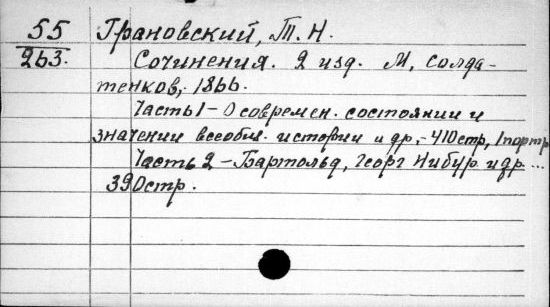 55 Грановский, Т. Н.
263. Сочинения. 2 изд. М, Солда-
тенков, 1866.
Часть 1 – О современ. состоянии и
значении всеобщ. истории и др, – 410стр, 1портр
Часть 2 – Бартольд, Георг Нибур и др...
390стр.